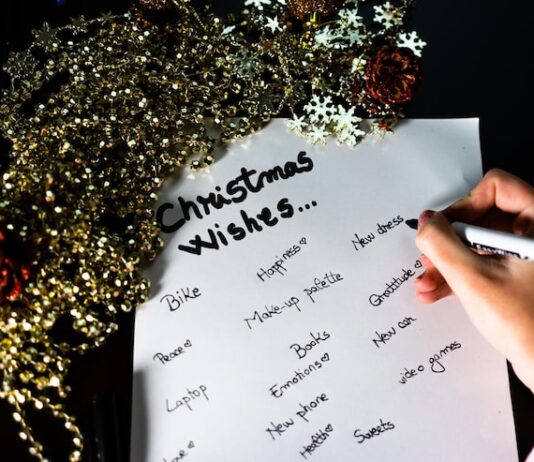 Christmas
Wishes...
Bike
Peace♡
Laptop
Happiness♡
Make-up palette
Books
Emotions♡
New phone
Health♡
New dress
Gratitude♡
New car
video games
Sweets